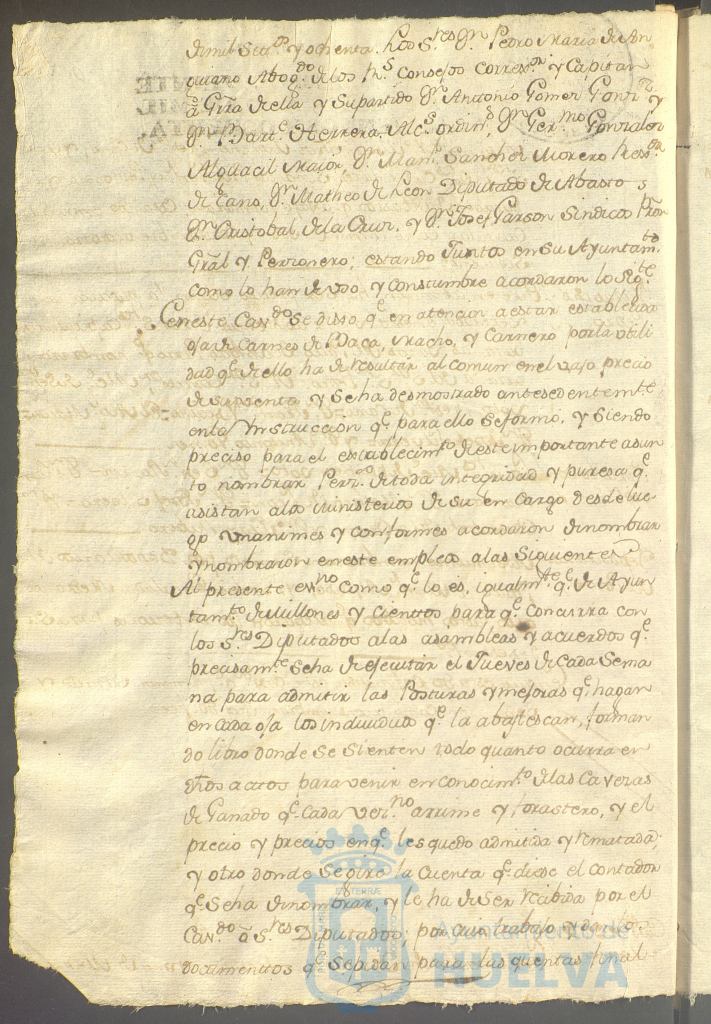 de mil Setts. y ochenta. Los S.res Dn. Pedro Maria de An
quiano Abog.do de los Rs. Consejos Correxr. y Capitan
a Grra de ella y Supartido Dn. Antonio Gomez Gonz. y
Dn. Bart.e Herrera, Alcs. ordin.s Dn. Ger.mo Gonzalez
Alguacil Maior, Dn. Man.l Sanchez Moreno
de Cano, Dn. Matheo de Leon Diputado de Abastos
Dn. Cristobal de la Cruz, y Dn. Josef Garzon Sindico Pror
Gral y Personero; estando Juntos en Su Ayuntam.to
como lo han de uso y Constumbre acordaron lo Sig.te
En este Cav.do Se dijo q.e en atencion a estar establecida
oja de Carnes de Baca, Macho, y Carnero por la utili
dad q.e de ello ha de resultar al comun en el vajo precio
de Su venta y Se ha desmostrado antesedentem.te
en la Ynstruccion q.e para ello Se formó, y Siendo
preciso para el establecim.to de este importante asun
to nombrar Per.s de toda integridad y puresa q.e
asistan alos ministerios de Su en Cargo desde lue
go unanimes y conformes acordaron de nombrar
y nombraron en este empleo a las Siguientes
Al presente es.no Como q.e lo es, igualm.te q.e de Ayun
tam.to de Millones y Cientos para q.e Concurra con
los S.res Diputados alas asambleas y acuerdos q.e
precisam.te Se ha de ejecutar el Jueves de Cada Sema
na para admitir las Posturas y mejoras q.e hagan
en Cada oja los individuos q.e la abastescan, forman
do libro donde Se Sienten todo quanto ocurra en
dhos actos para venir en conocim.to de las Cavezas
de Ganado q.e Cada Vez.no arrime y forastero, y el
precio y precios en q.e les quedo admitida y rematada;
y otro donde Se gire la Cuenta q.e diese el contador
q.e Se ha de nombrar, y le ha de Ser recibida por el
Cav.do ó S.res Diputados; por cuio trabajo y demas
documentos q.e Se pidan para las quentas final
Ayuntamiento de
HUELVA